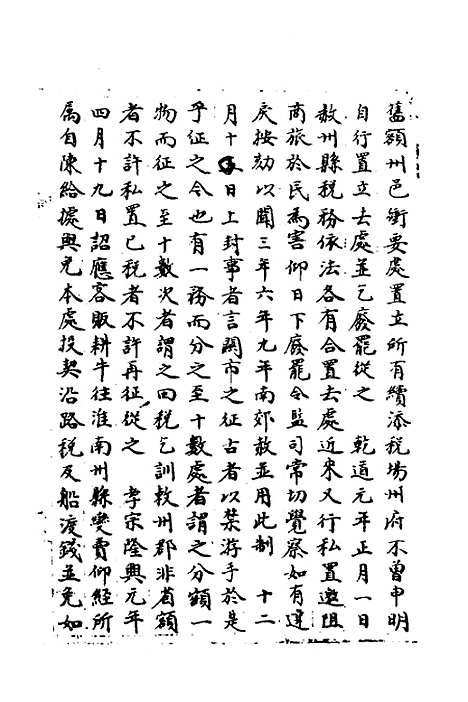 舊額州邑衝要處置立所有續添稅場州府不曾申明
自行置立去處並乞廢罷從之　乾道元年正月一日
赦州縣稅務依法各有合置去處近來又行私置邀阻
商旅於民為害仰日下廢罷令監司常切覺察如有違
戾按劾以聞三年六年九年南郊赦並用此制　十二
月十五日上封事者言關市之征古者以禁游手於是
乎征之今也有一務而分之至十數處者謂之分額一
物而征之至十數次者謂之回稅乞訓敕州郡非省額
者不許私置已稅者不許再征從之　孝宗隆興元年
四月十九日詔應客販耕牛往淮南州縣變賣仰經所
属自陳給據與免本處投契沿路稅及船渡錢並免如